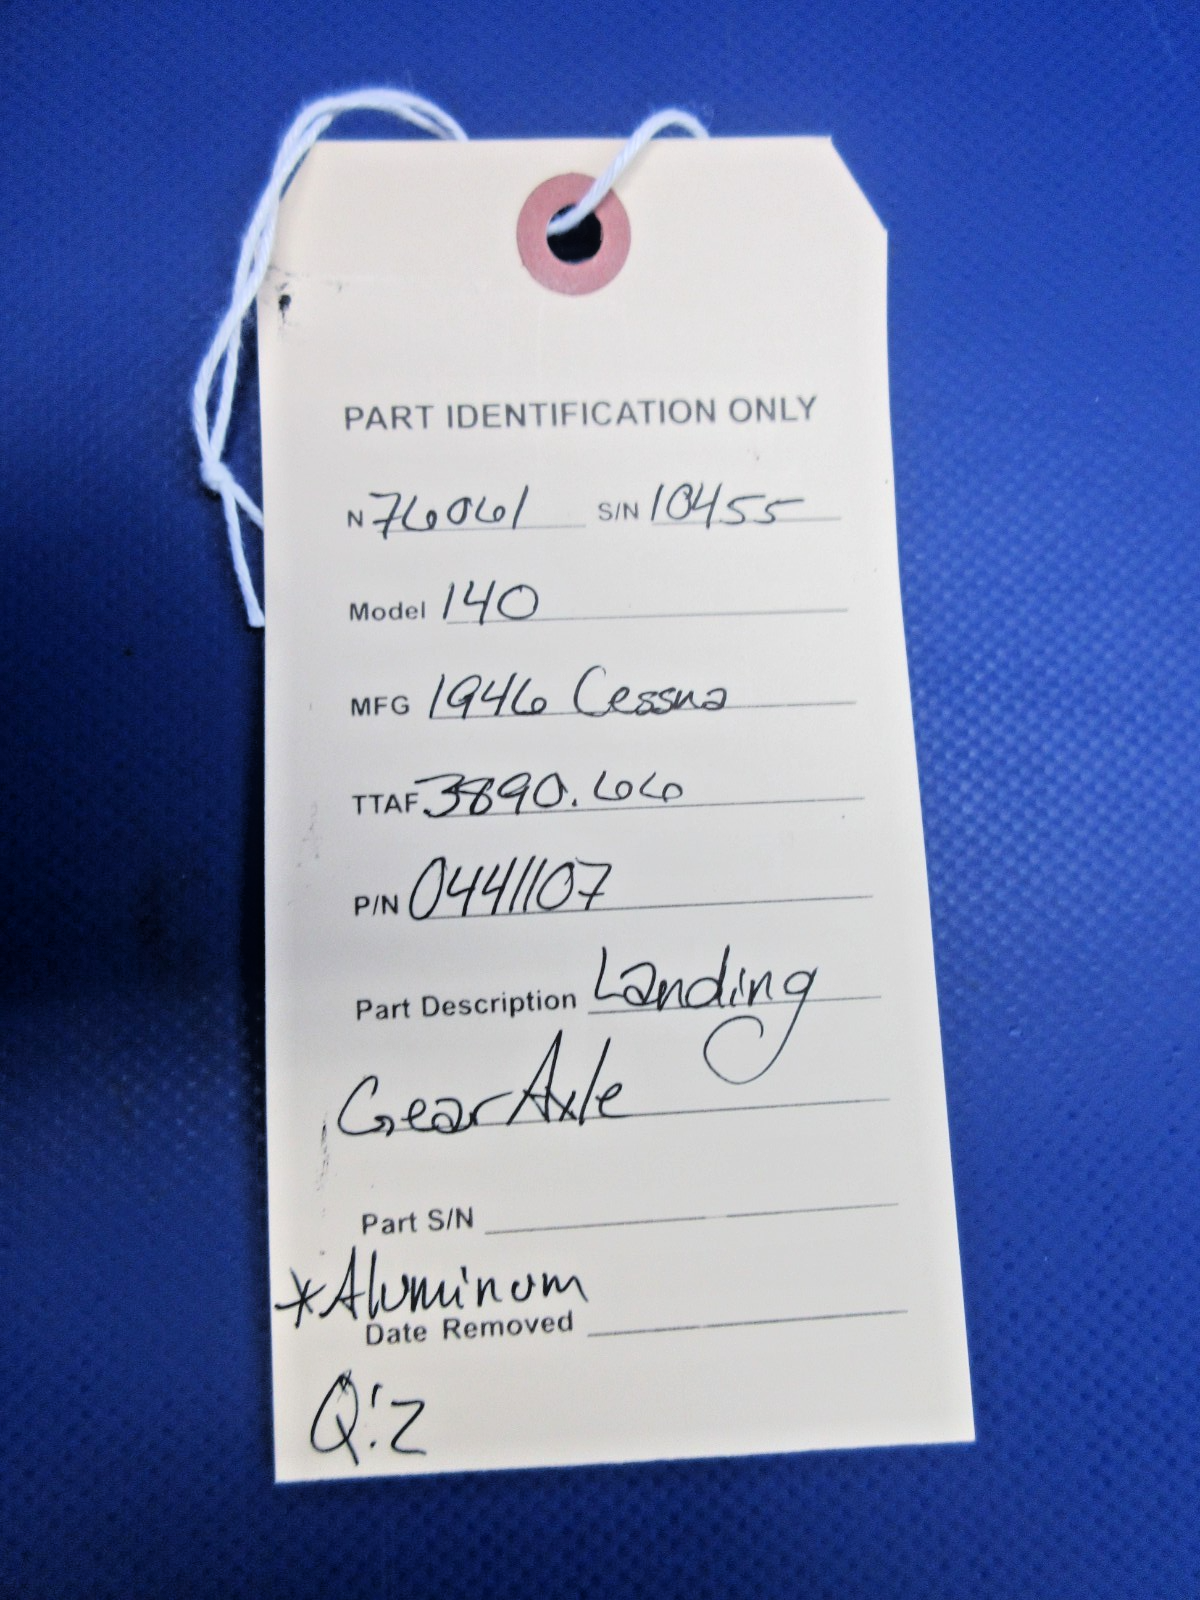 PART IDENTIFICATION ONLY
N 76061 S/N 10455
Model 140
MFG 1946 Cessna
TTAF 3890.66
P/N 0441107
Part Description Landing
Gear Axle
Part S/N
*Aluminum
Date Removed
Q:2